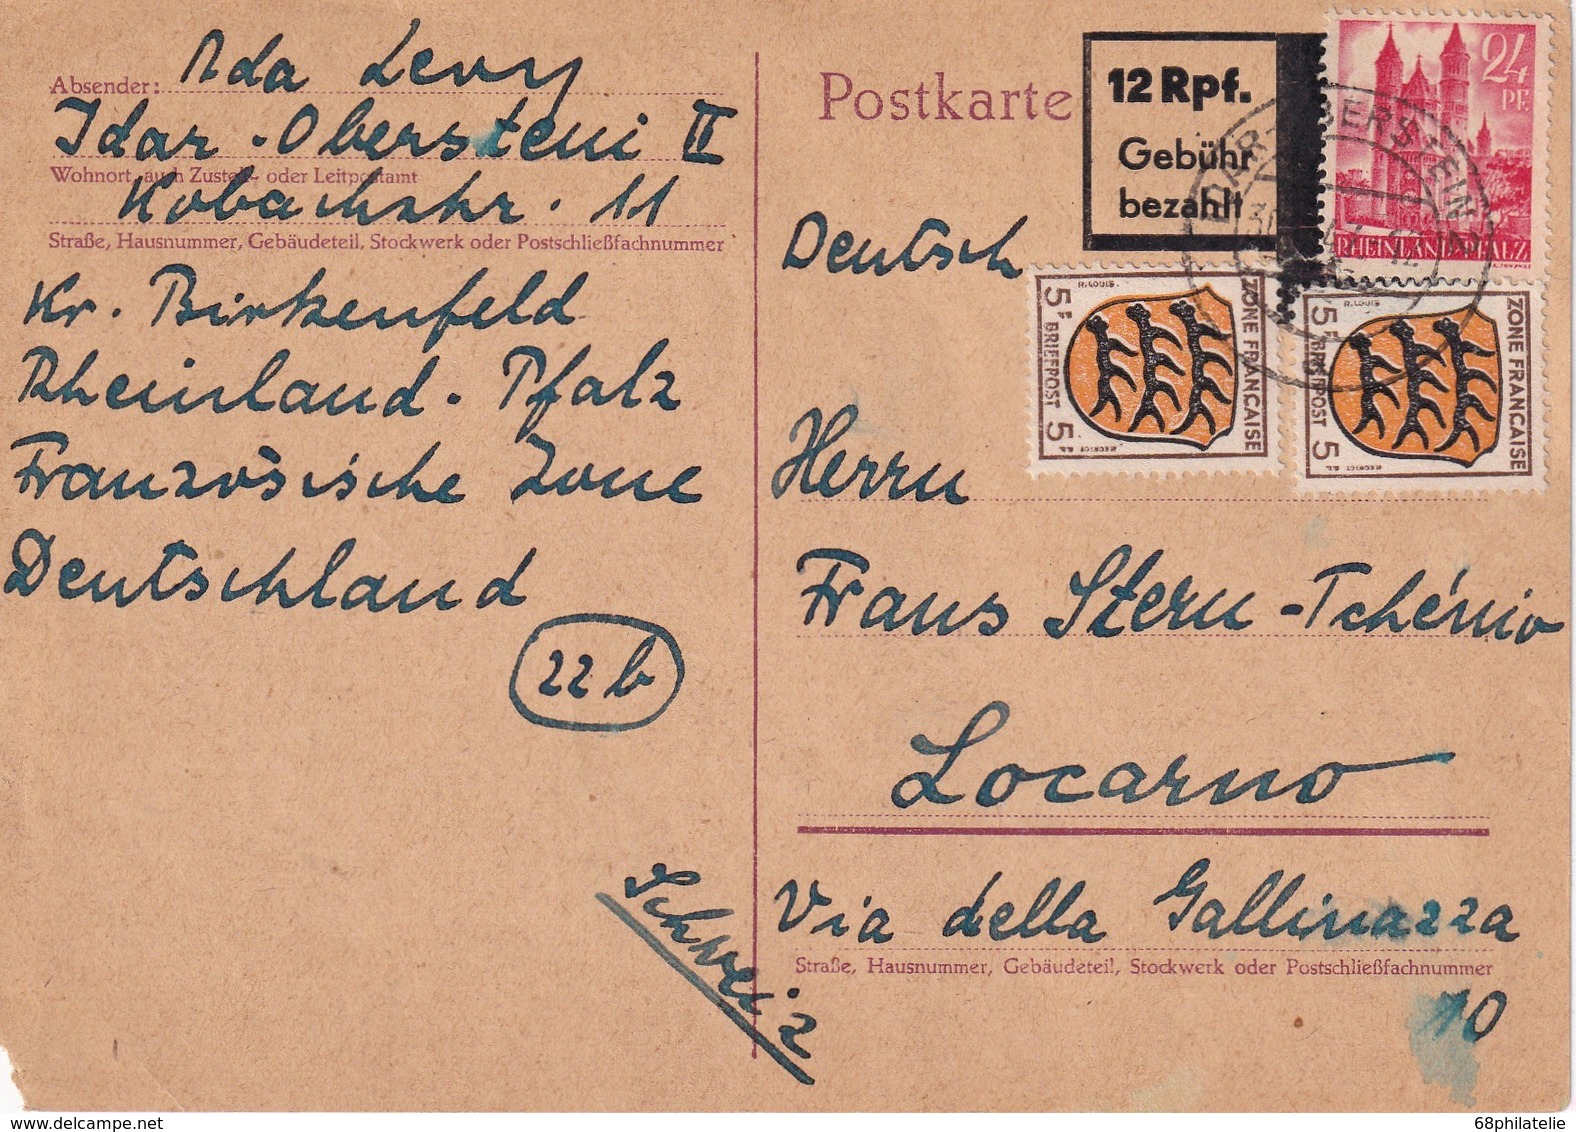 Absender: Ada Levy
Idar-Oberstein II
Wohnort, auch Zustell- oder Leitpostamt
Kobachstr. 11
Straße, Hausnummer, Gebäudeteil, Stockwerk oder Postschließfachnummer
Kr. Birkenfeld
Rheinland-Pfalz
Französische Zone
Deutschland
22b
Schweiz
Postkarte
12 Rpf.
Gebühr
bezahlt
24
PF.
RHEINLAND-PFALZ
IDAR-OBERSTEIN 2
Deutsch
R. LOUIS.
5 F BRIEFPOST 5
ZONE FRANÇAISE
R. LOUIS
5 F BRIEFPOST 5
ZONE FRANÇAISE
Herrn
Frans Stern-Tchénio
Locarno
Via della Gallinazza
Straße, Hausnummer, Gebäudeteil, Stockwerk oder Postschließfachnummer
10
68philatelie